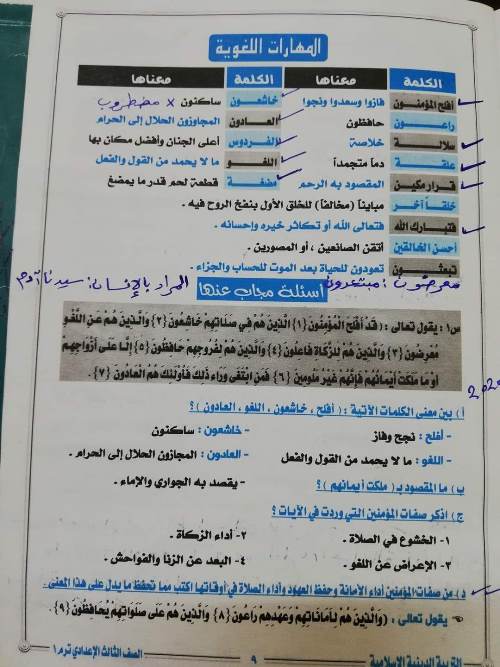 المهارات اللغوية
الكلمة معناها الكلمة معناها
أفلح المؤمنون فازوا وسعدوا ونجوا خاشعون ساكنون × مضطربون
راعون حافظون العادون المجاوزون الحلال إلى الحرام
سلالة خلاصة الفردوس أعلى الجنان وأفضل مكان بها
علقة دماً متجمداً اللغو ما لا يحمد من القول والفعل
قرار مكين المقصود به الرحم مضغة قطعة لحم قدر ما يمضغ
خلقاً آخر مبايناً (مخالفاً) للخلق الأول بنفخ الروح فيه .
فتبارك الله فتعالى الله أو تكاثر خيره وإحسانه .
أحسن الخالقين أتقن الصانعين ، أو المصورين .
تبعثون تعودون للحياة بعد الموت للحساب والجزاء .
معرضون : مبتعدون المراد بالإنسان : سيدنا آدم
أسئلة مجاب عنها
س١ : يقول تعالى : ( قَدْ أَفْلَحَ الْمُؤْمِنُونَ {١} الَّذِينَ هُمْ فِي صَلَاتِهِمْ خَاشِعُونَ {٢} وَالَّذِينَ هُمْ عَنِ اللَّغْوِ
مُعْرِضُونَ {٣} وَالَّذِينَ هُمْ لِلزَّكَاةِ فَاعِلُونَ {٤} وَالَّذِينَ هُمْ لِفُرُوجِهِمْ حَافِظُونَ {٥} إِلَّا عَلَى أَزْوَاجِهِمْ
أوْ مَا مَلَكَتْ أَيْمَانُهُمْ فَإِنَّهُمْ غَيْرُ مَلُومِينَ {٦} فَمَنِ ابْتَغَى وَرَاء ذَلِكَ فَأُوْلَئِكَ هُمُ الْعَادُونَ {٧} .
أ ) بين معنى الكلمات الآتية : ( أفلح ، خاشعون ، اللغو ، العادون ) ؟
- أفلح : نجح وفاز - خاشعون : ساكنون
- اللغو : ما لا يحمد من القول والفعل - العادون : المجاوزون الحلال إلى الحرام .
ب ) ما المقصود بـ ( ملكت أيمانهم ) ؟ - يقصد به الجواري والإماء .
ج ) اذكر صفات المؤمنين التي وردت في الآيات ؟
١- الخشوع في الصلاة . ٢- أداء الزكاة .
٣- الإعراض عن اللغو . ٤- البعد عن الزنا والفواحش .
د ) من صفات المؤمنين أداء الأمانة وحفظ العهود وأداء الصلاة في أوقاتها اكتب مما تحفظ ما يدل على هذا المعنى .
يقول تعالى : ( وَالَّذِينَ هُمْ لِأَمَانَاتِهِمْ وَعَهْدِهِمْ رَاعُونَ {٨} وَالَّذِينَ هُمْ عَلَى صَلَوَاتِهِمْ يُحَافِظُونَ {٩} .
التربية الدينية الإسلامية ٩ الصف الثالث الإعدادي ترم ١